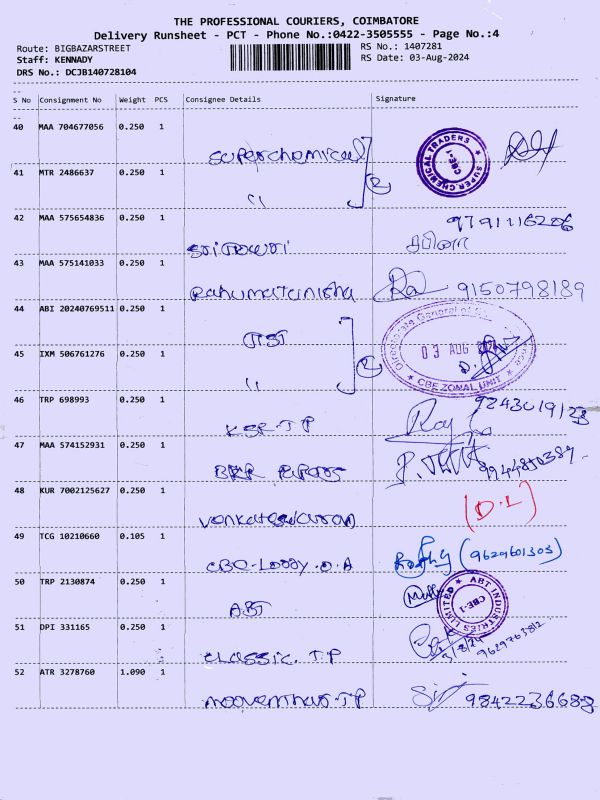 THE PROFESSIONAL COURIERS, COIMBATORE
Delivery Runsheet - PCT - Phone No.:0422-3505555 - Page No.:4
Route: BIGBAZARSTREET
RS No.: 1407281
Staff: KENNADY
RS Date: 03-Aug-2024
DRS No.: DCJB140728104
S No Consignment No Weight PCS Consignee Details Signature
40 MAA 704677056 0.250 1
superchemical
SUPER CHEMICAL TRADERS CBE-1
41 MTR 2486637 0.250 1
"
42 MAA 575654836 0.250 1
9791116206
43 MAA 575141033 0.250 1
Rahumatanisha
9150798189
44 ABI 20240769511 0.250 1
Directorate General of
03 AUG
CBE ZONAL UNIT
45 IXM 506761276 0.250 1
"
46 TRP 698993 0.250 1
KSR.TP
Raj
47 MAA 574152931 0.250 1
48 KUR 7002125627 0.250 1
Venkateswaran
(D.L)
49 TCG 10210660 0.105 1
CBC-Lobby.O.A
(9629601303)
50 TRP 2130874 0.250 1
ABT
ABT INDUSTRIES LIMITED CBE-1
51 DPI 331165 0.250 1
classic.T.P
3/8/24
52 ATR 3278760 1.090 1
mooventhar.TP